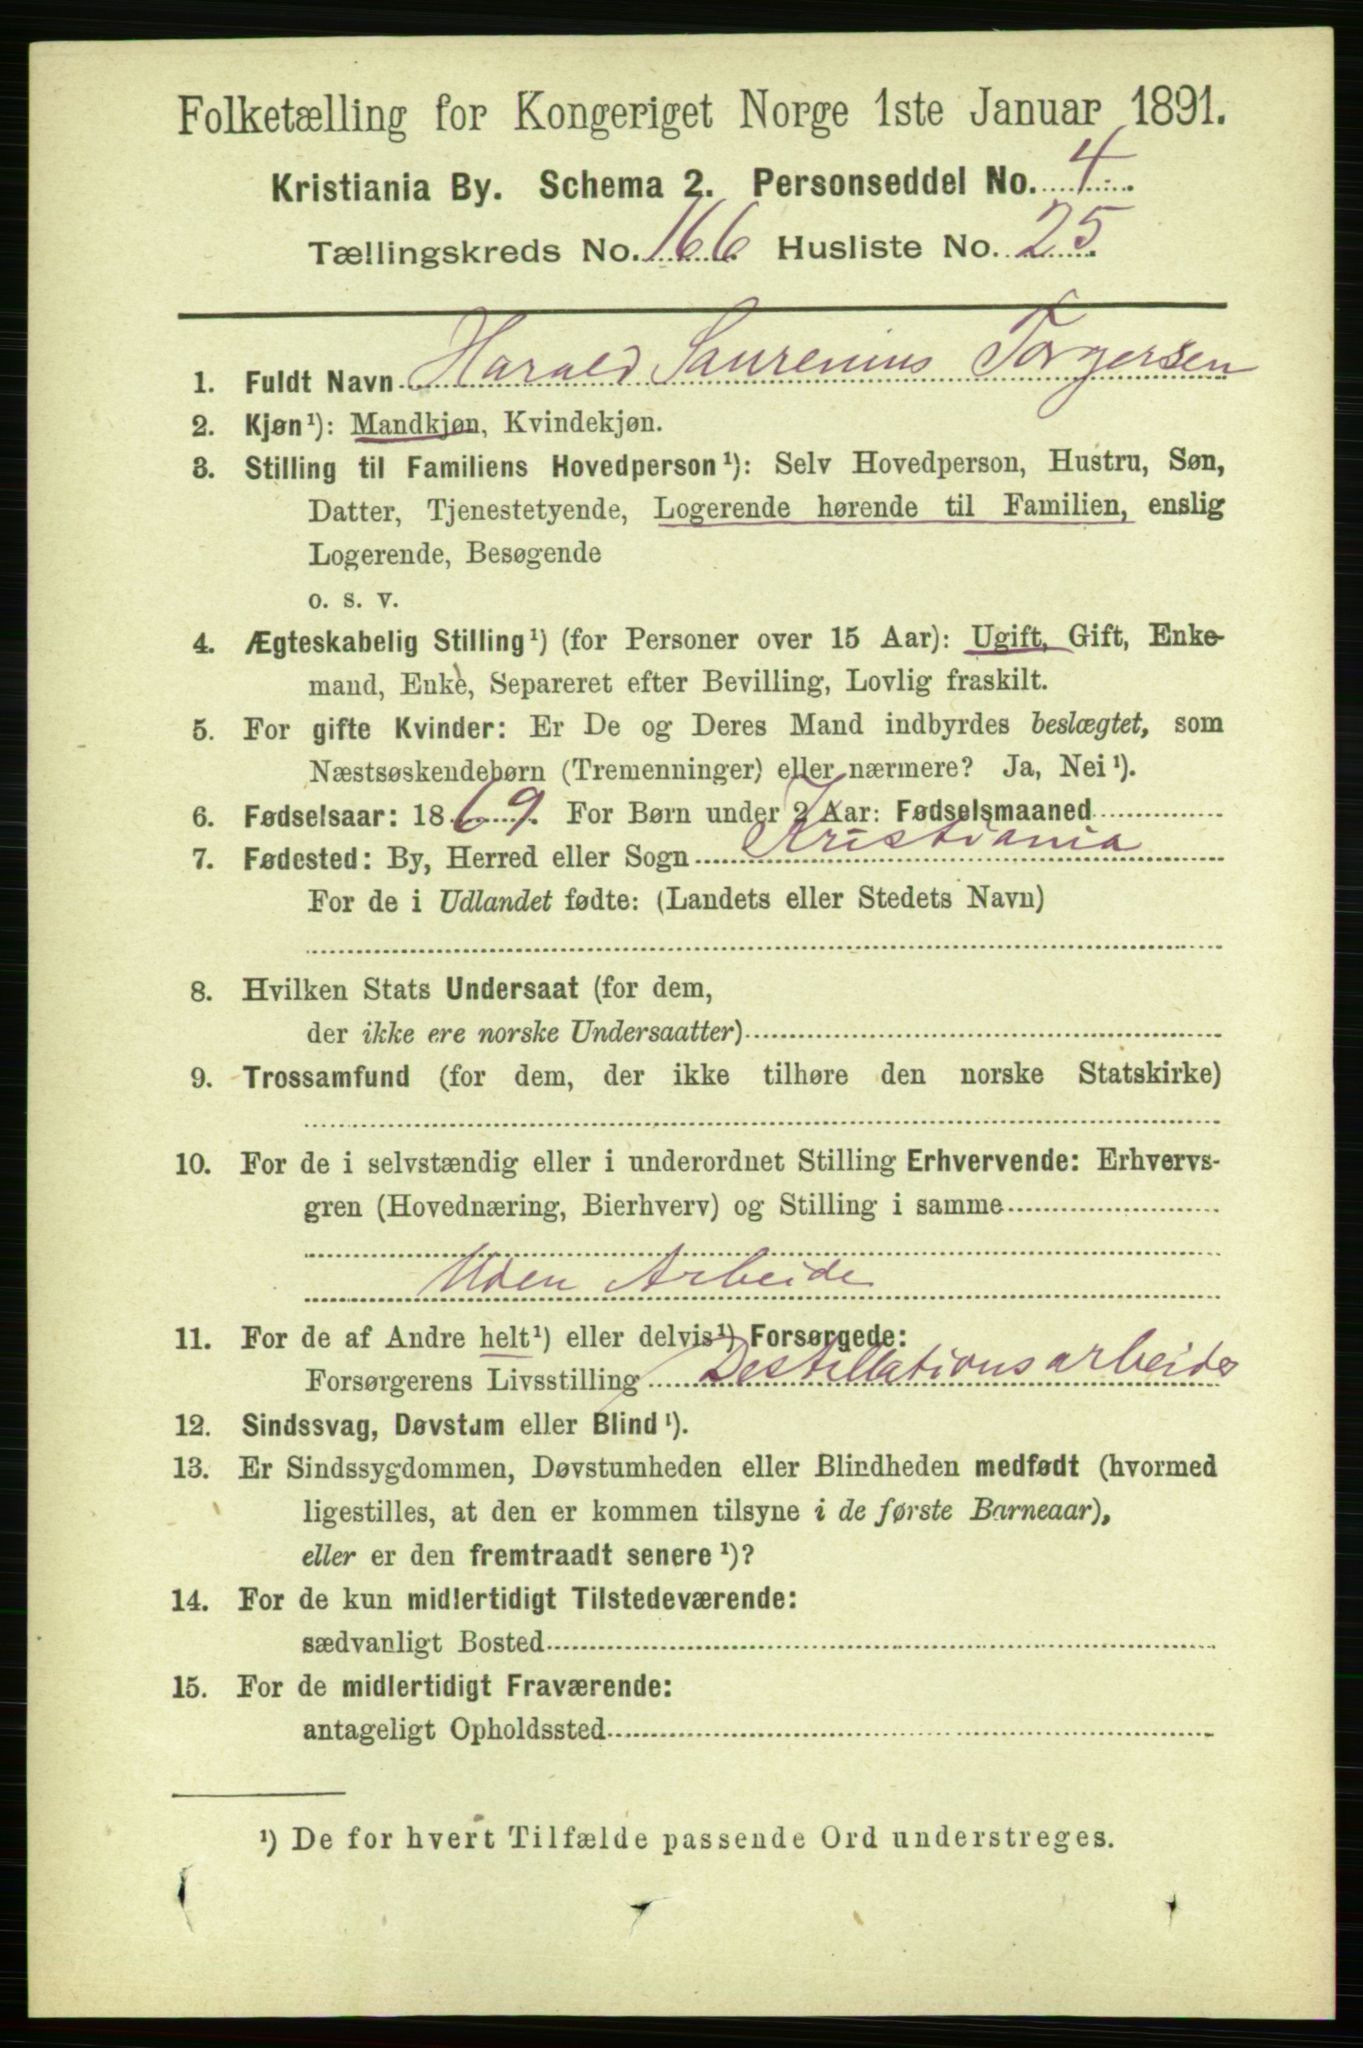 Folketælling for Kongeriget Norge 1ste Januar 1891.
Kristiania By. Schema 2. Personseddel No. 4.
Tællingskreds No. 166. Husliste No. 25.
1. Fuldt Navn Harald Laurenius Torgersen
2. Kjøn¹): Mandkjøn, Kvindekjøn.
3. Stilling til Familiens Hovedperson¹): Selv Hovedperson, Hustru, Søn,
Datter, Tjenestetyende, Logerende hørende til Familien, enslig
Logerende, Besøgende
o. s. v.
4. Ægteskabelig Stilling¹) (for Personer over 15 Aar): Ugift, Gift, Enke-
mand, Enke, Separeret efter Bevilling, Lovlig fraskilt.
5. For gifte Kvinder: Er De og Deres Mand indbyrdes beslægtet, som
Næstsøskendebørn (Tremenninger) eller nærmere? Ja, Nei¹).
6. Fødselsaar: 1869. For Børn under 2 Aar: Fødselsmaaned
7. Fødested: By, Herred eller Sogn Kristiania
For de i Udlandet fødte: (Landets eller Stedets Navn)
8. Hvilken Stats Undersaat (for dem,
der ikke ere norske Undersaatter)
9. Trossamfund (for dem, der ikke tilhøre den norske Statskirke)
10. For de i selvstændig eller i underordnet Stilling Erhvervende: Erhvervs-
gren (Hovednæring, Bierhverv) og Stilling i samme
Uden Arbeide
11. For de af Andre helt¹) eller delvis¹) Forsørgede:
Forsørgerens Livsstilling Destillationsarbeider
12. Sindssvag, Døvstum eller Blind¹).
13. Er Sindssygdommen, Døvstumheden eller Blindheden medfødt (hvormed
ligestilles, at den er kommen tilsyne i de første Barneaar),
eller er den fremtraadt senere¹)?
14. For de kun midlertidigt Tilstedeværende:
sædvanligt Bosted
15. For de midlertidigt Fraværende:
antageligt Opholdssted
¹) De for hvert Tilfælde passende Ord understreges.